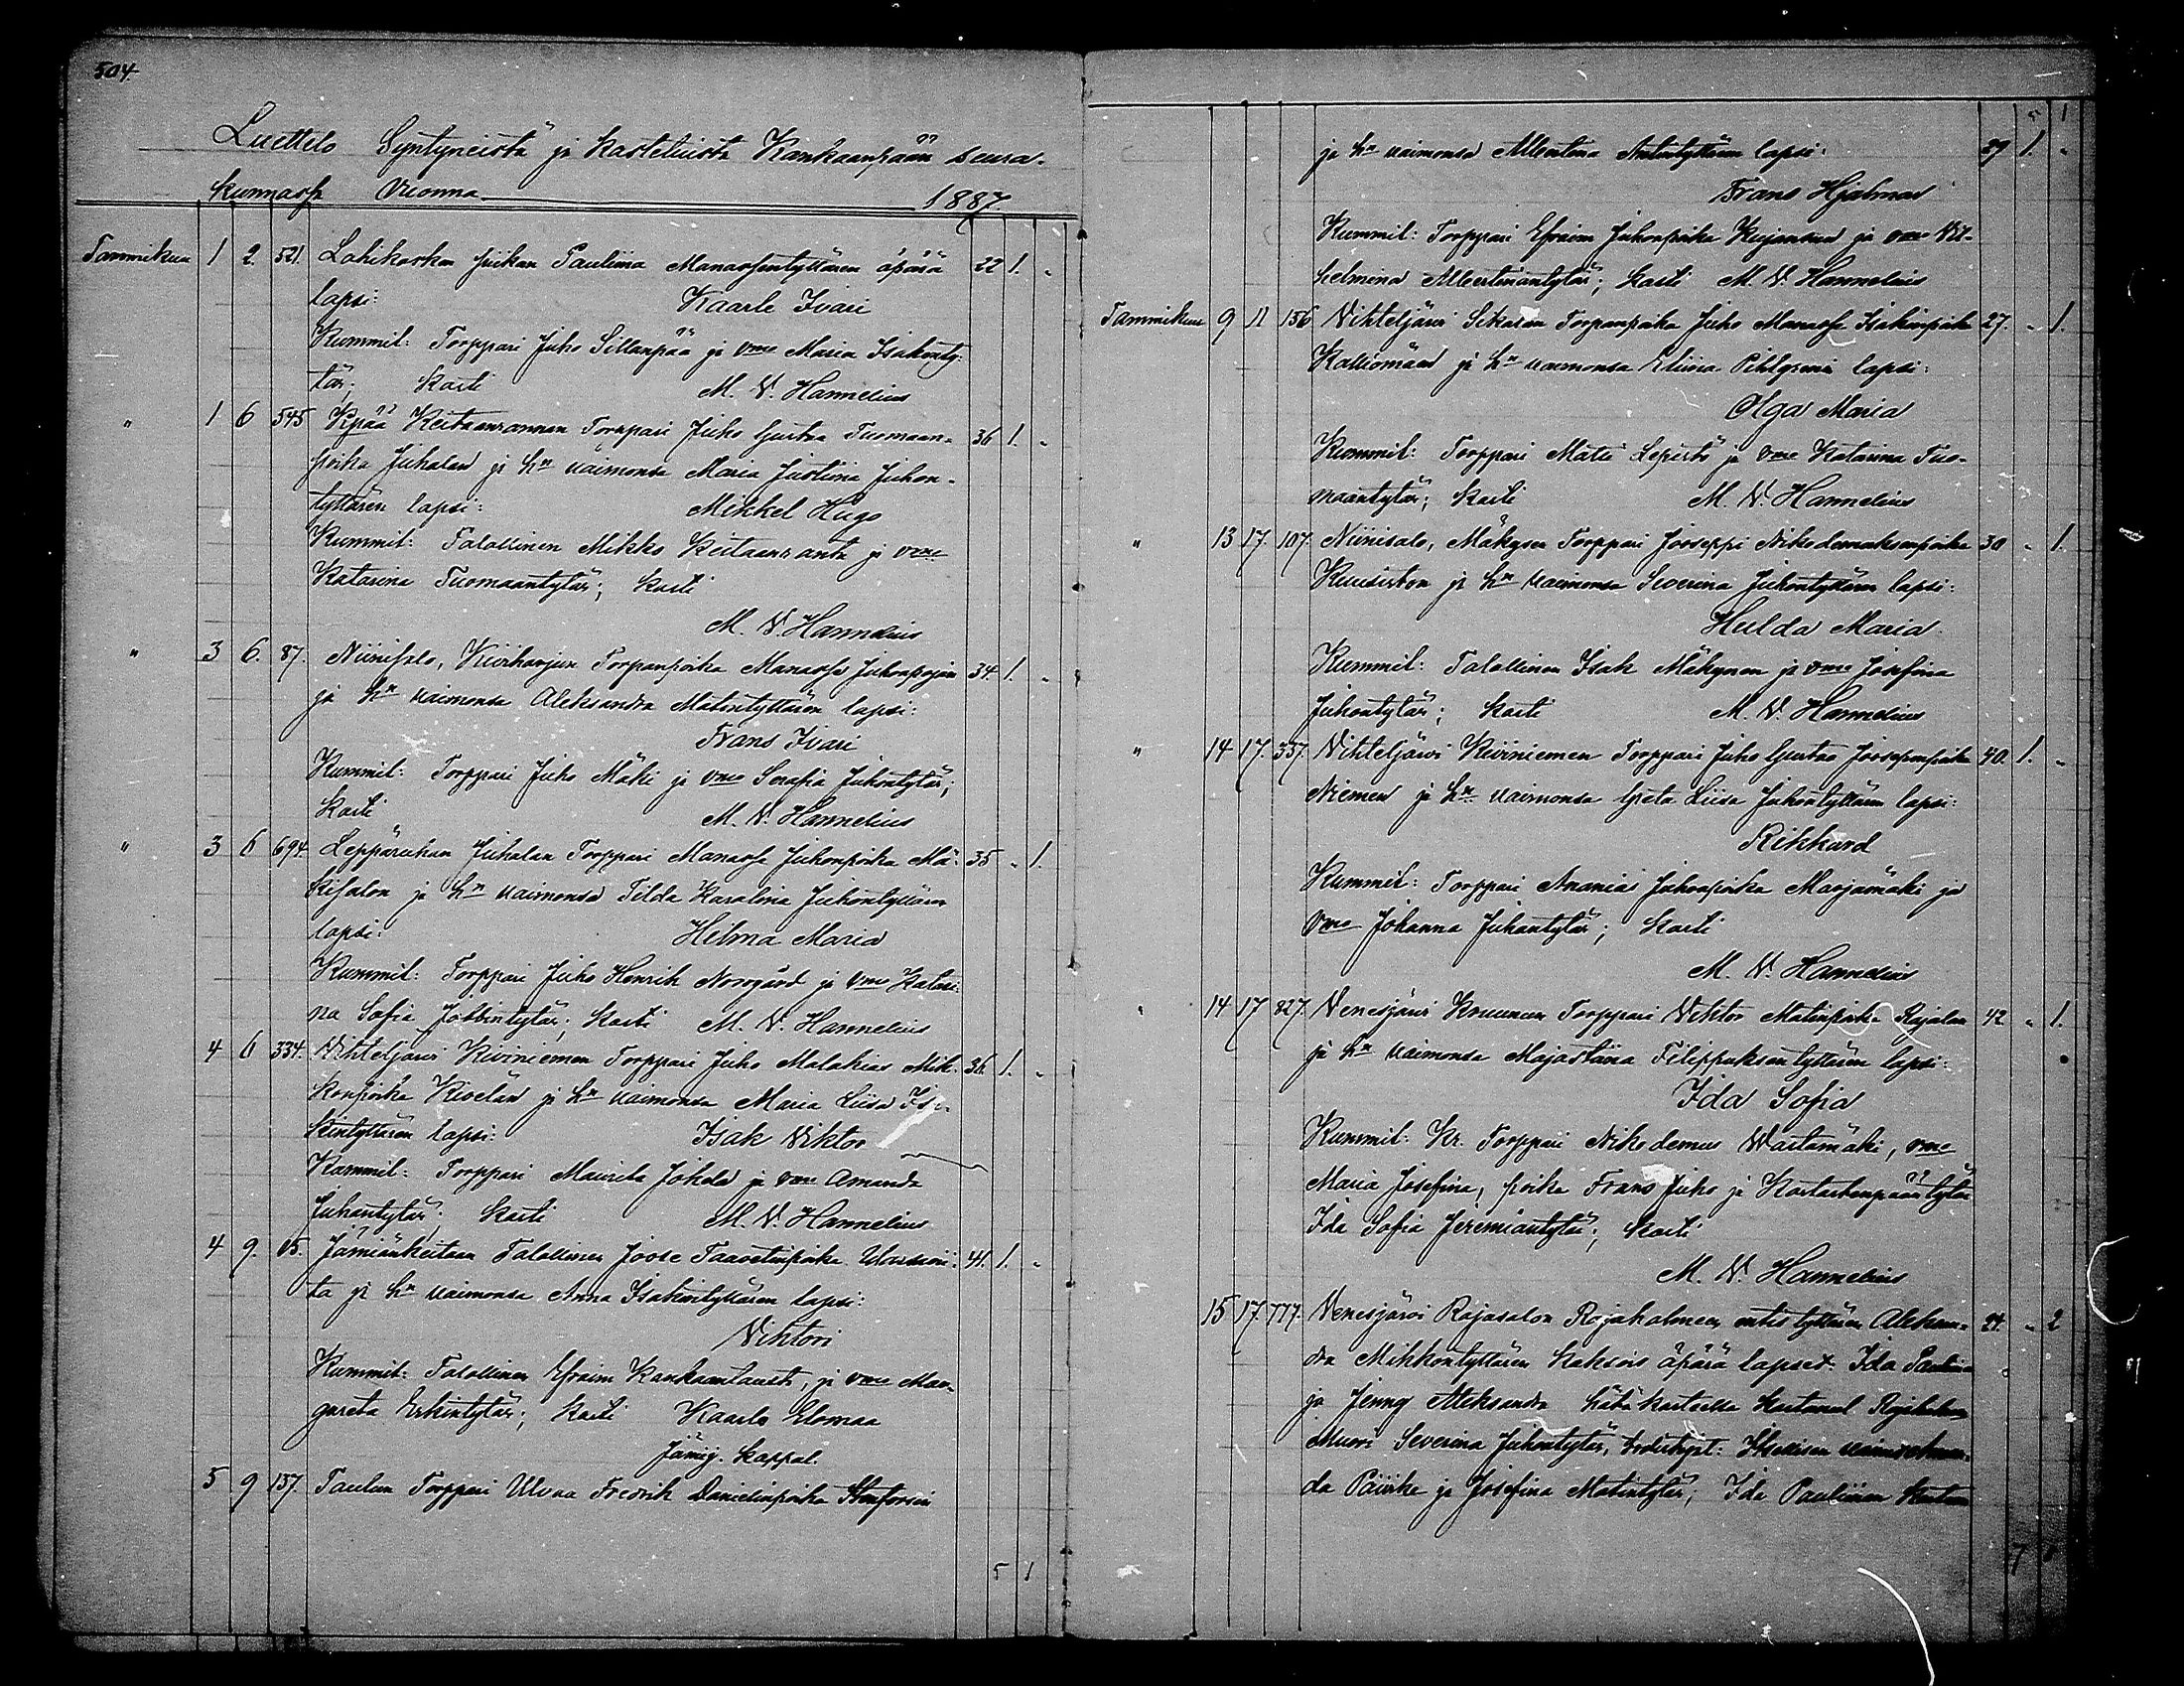 504.
Luettelo Syntyneistä ja Kastetuista Kankaanpään seura-
kunnassa Vuonna 1887.
Tammikuu 1 2. 521. Lohikosken piikan Pauliina Manassentyttären äpärä 22 1. "
lapsi: Kaarle Ivari
Kummit: Torppari Juho Sillanpää ja vmo Maria Isakinty-
tär; Kasti M. V. Hannelius
" 1 6 545 Kpää Keitaanrannan Torppari Juho Gustaa Tuomaan- 36 1. "
poika Juhalan ja hn vaimonsa Maria Justiina Juhon-
tyttären lapsi: Mikkel Hugo
Kummit: Talollinen Mikko Keitaanranta ja vmo
Katarina Tuomaantytär; Kasti
M. V. Hannelius
" 3 6. 87. Niinisalo, Kiviharjun Torpanpoika Manasse Juhonpojan 34. 1. "
ja hn vaimonsa Aleksandra Matintyttären lapsi:
Frans Ivari
Kummit: Torppari Juho Mäki ja vmo Serafia Juhontytär;
Kasti M. V. Hannelius
" 3 6 694. Leppäruhan Juhalan Torppari Manasse Juhonpoika Mä- 35 " 1.
kisalon ja hn vaimonsa Tilda Karolina Juhontyttären
lapsi: Hilma Maria
Kummit: Torppari Juho Henrik Norrgård ja vmo Katari-
na Sofia Jobbintytär; Kasti M. V. Hannelius
4 6 334. Vihteljärvi Kiviniemen Torppari Juho Malakias Mik- 36 1. "
konpoika Kivelän ja hn vaimonsa Maria Liisa
kintyttären lapsi: Isak Viktor
Kummit: Torppari Mauritz Jokela ja vmo Amanda
Juhantytär; Kasti M. V. Hannelius
4 9. 15. Jämiänkeitaan Talollinen Joose Taavetinpoika 41. 1. "
ta ja hn vaimonsa Anna Isakintyttären lapsi:
Vihtori
Kummit: Talollinen Efraim Kankaantausta, ja vmo Mar-
gareta Erkintytär; Kasti Kaarlo Elomaa
Jämij. Kappal.
5 9 137. Taulun Torppari Ulvaa Fredrik Danielinpoika Stenforsin
5 1
5 1
ja hn vaimonsa Albertina Antintyttären lapsi: 29 1. "
Frans Hjalmar
Kummit: Torppari Efraim Juhonpoika Kujansuu ja vmo Vil-
helmina Albertinantytär; Kasti M. V. Hannelius
Tammikuu 9 11 156 Vihteljärvi Sikasan Torpanpoika Juho Manasse Isakinpoika 27. " 1.
Kalliomäen ja hn vaimonsa Eliina Pihlgrenin lapsi:
Olga Maria
Kummit: Torppari Matti Lepistö ja vmo Katarina Tuo-
maantytär; Kasti M. V. Hannelius
" 13 17. 107. Niinisalo, Mäkysen Torppari Jooseppi Nikodemuksenpoika 30 " 1.
Kuusiston ja hn vaimonsa Severina Juhontyttären lapsi:
Hulda Maria
Kummit: Talollinen Isak Mäkynen ja vmo Josefina
Juhontytär; Kasti M. V. Hannelius
" 14 17. 337. Vihteljärvi Kiviniemen Torppari Juho Gustaa Joosepinpoika 40. 1. "
Niemen ja hn vaimonsa Greta Liisa Juhontyttären lapsi:
Rikkard
Kummit: Torppari Ananias Juhonpoika Marjamäki ja
vmo Johanna Juhantytär; Kasti
M. V. Hannelius
" 14 17 827. Venesjärvi Kruunun Torppari Viktor Matinpoika Rajalan 42 " 1.
ja hn vaimonsa Majastiina Filippuksentyttären lapsi:
Ida Sofia
Kummit: Kr. Torppari Nikodemus Wartamäki, vmo
Maria Josefina, poika Frans Juho ja tytär
Ida Sofia Jeremiantytär; Kasti
M. V. Hannelius
15 17. 777. Venesjärvi Rajasalon Rajakalmeen tyttären Aleksan- 24. " 2
dra Mihkontyttären kaksois äpärä lapset: Ida Pauliina
ja Jenny Aleksandra hätäkasteella kastanut
Muori Severina Juhontytär, todistajat: Itsellisen vaimo Aman-
da Päivike ja Josefina Matintytär; Ida Pauliinan
7